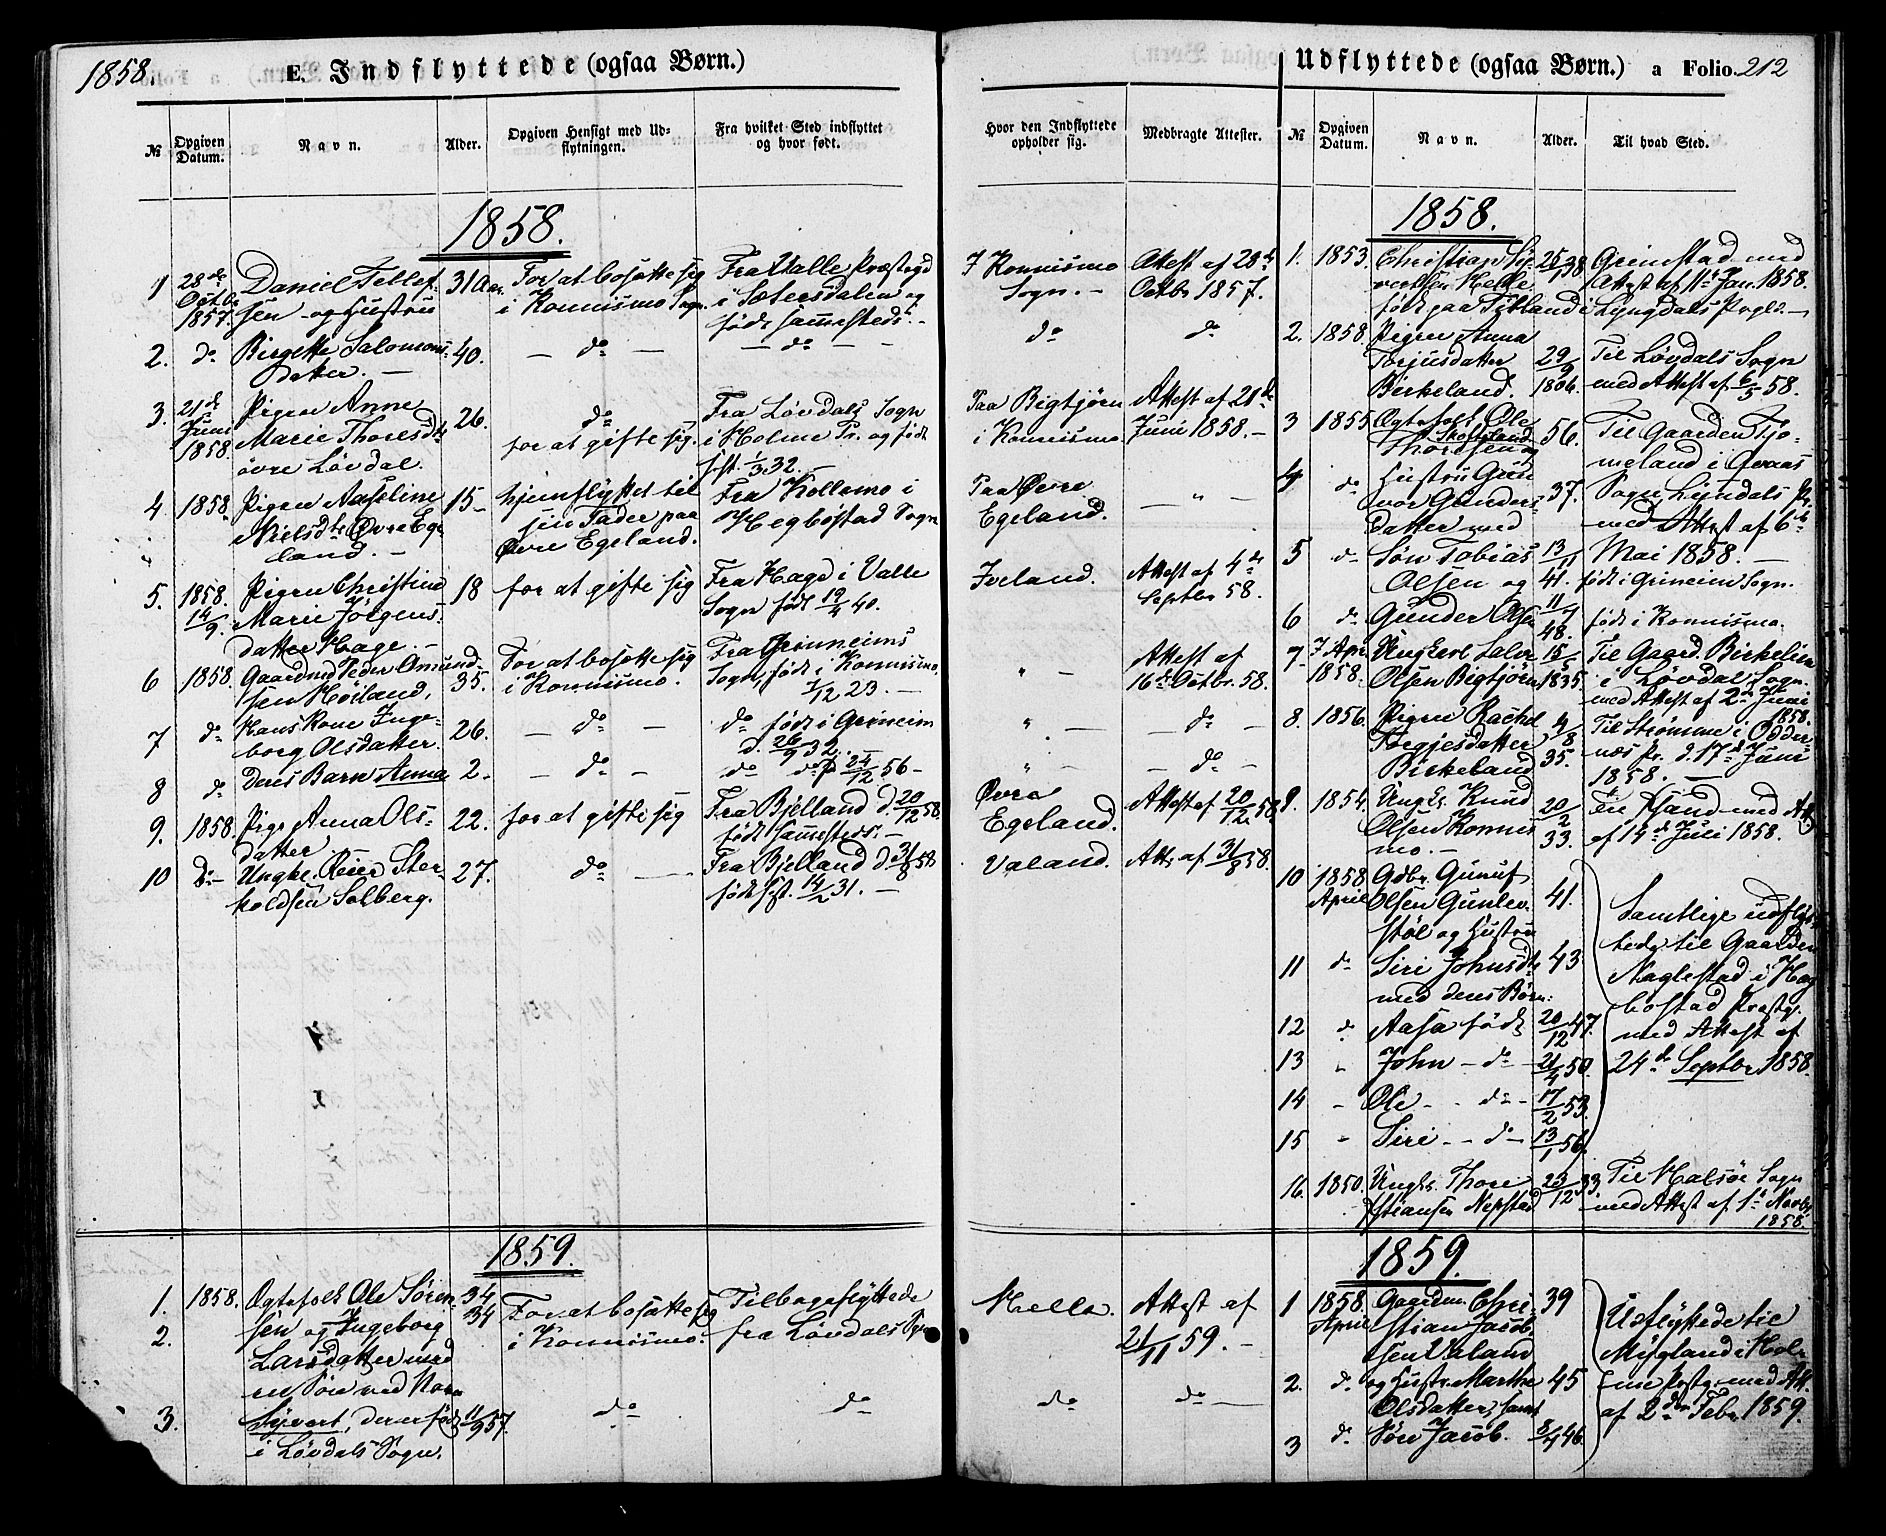 1858.
E. Indflyttede (ogsaa Børn.)
№
Opgiven Datum.
Navn.
Alder.
Opgiven Hensigt med Udflytningen.
Fra hvilket Sted indflyttet og hvor født.
1858.
1 28de Octbr 1857. Daniel Tellef-
sen og Hustru
31 Aar For at bosætte sig
i Konnismo Sogn.
Fra Valle Præstegd
i Sætersdalen og
født sammesteds.
2. do Birgette Salomons-
datter. 40. — do — — do — —
3. 21de Juni 1858 Pigen Anne
Marie Thoresdtr
øvre Løvdal.
26. do
for at gifte sig.
Fra Løvdals Sogn
i Holme Pr. og født
1/3 32.
4 1858. Pigen Aasoline
Nielsdtr Øvre Ege-
land. —
15 — hjemflyttet til
sin Fader paa
Øvre Egeland.
Fra Kollemo i
Hegbøstad Sogn
5. 1858. 14/9. Pigen Christine
Marie Jørgens-
datter Hage. —
18 for at gifte sig
Fra Hage i Valle
Sogn født 19/4 40.
6 1858. Gaardmd Peder Amund-
sen Høiland,
35. For at bosætte sig
i Konnismo.
Fra Grinneims
Sogn, født i Konnismo
1/12 23. —
7 do Hans Kone Inge-
borg Olsdatter. 26. — do —
do født i Grineim
d. 26/9 32.
8 do Deres Barn Anna 2. — do — do do 24/12 56 —
9. 1858. Pige Anna Ols-
datter
22. for at gifte sig
Fra Bjelland d. 20/12 58.
født sammesteds. —
10 do — Ungk. Reier Ster-
koldsen Solberg.
27. do —
Fra Bjelland d 31/8 58
født 14/2 31. —
1859.
1. 1858. Ogtefolk Ole Søren- 34
2. sen og Ingeborg 34
Larsdatter med
en Søn ved Navn
For at bosætte sig
i Konnismo.
Tilbageflyttede
fra Løvdals Sogn
3. Syvert, der er født 11/9 57. do do
i Løvdals Sogn.
Hvor den Indflyttede opholder sig.
Medbragte Attester.
I Konnismo
Sogn. —
Attest af 28de
Octbr 1857.
do do
Paa Bigtjørn
i Konnismo
Attest af 21de
Juni 1858. —
Paa Øvre
Egeland.
— " —
Iveland. Attest af 4de
Septbr 58.
" Attest af
16de Octbr. 58.
" — do —
" — do —
Øvre
Egeland. Attest af 20/12 58
Valand. Att. af 31/8 58.
Melle. Attest af
21/11 59. —
do do —
Udflyttede (ogsaa Børn.) a Folio. 212
№
Opgiven Datum.
Navn.
Alder.
Til hvad Sted.
1858.
1. 1853. Christian Sy-
vertsen Helle
født paa
25/1 38 Grimstad med
Attest af 11te Jan. 1858.
i Lyngdals Prgld. —
2. 1858. Pigen Anna
Torjusdatter
Birkeland.
29/9 1806. Til Løvdals Sogn
med Attest af 6/5 58.
3 1855 Ogtefolk Ole
Thordsen Skofteland og
56. Til Gaarden Tjo-
meland i Qvaas
4 do Hustru Gun-
vor Gunders-
datter med
37. Sogn Lyndals Pr.
med Attest af 6te
5 do Søn Tobias
Olsen og
13/11 41. Mai 1858. —
født i Grineim Sogn.
6 do Gunder Olsen 11/7 48. født i Konnismo.
7 Apr. 1858. Ungkarl Salve
Olsen Bigtjørn
15/5 1835. Til Gaard Birkelien
i Løvdal Sogn.
med Attest af 2den Juni 1858.
8. 1856. Pigen Rachel
Torgjesdatter
Birkeland
4/8 35. Til Strømme i Odder-
næs Pr. d. 17de Juni
1858. —
9. 1854. Ungk. Knud
Olsen Konnis
mo. —
20/2 33. Til med Att.
af 14de Juni 1858.
10 1858 April Gdbr. Gunuf
Olsen Gunlev-
støl og Hustru
41.
11 do Siri Johnsdtr 43
med deres Børn:
12 do Aasa født 20/12 47.
13 " John — do — 21/4 50.
14 " Ole — do — 17/2 53.
15 " Siri — do — 13/1 56.
Samtlige udflyt-
tede til Gaarden
Naglestad i Hæg
bostad Præstg.
med Attest af
24de Septbr 1858.
16. 1850. Ungk. Thore
Nepstad
23/12 33. Til Halsøe Sogn
med Attest af 1te Novbr
1858.
1859.
1 1858. April Gaardm. Chri-
stian Jacob-
sen Valand
39
2. do og Hustr. Marthe
Olsdatter, samt
45
3 do Søn Jacob. 8/4 46.
Udflyttede til
Mygland i Hol-
me Prstg. med Att.
af 2den Febr. 1859.